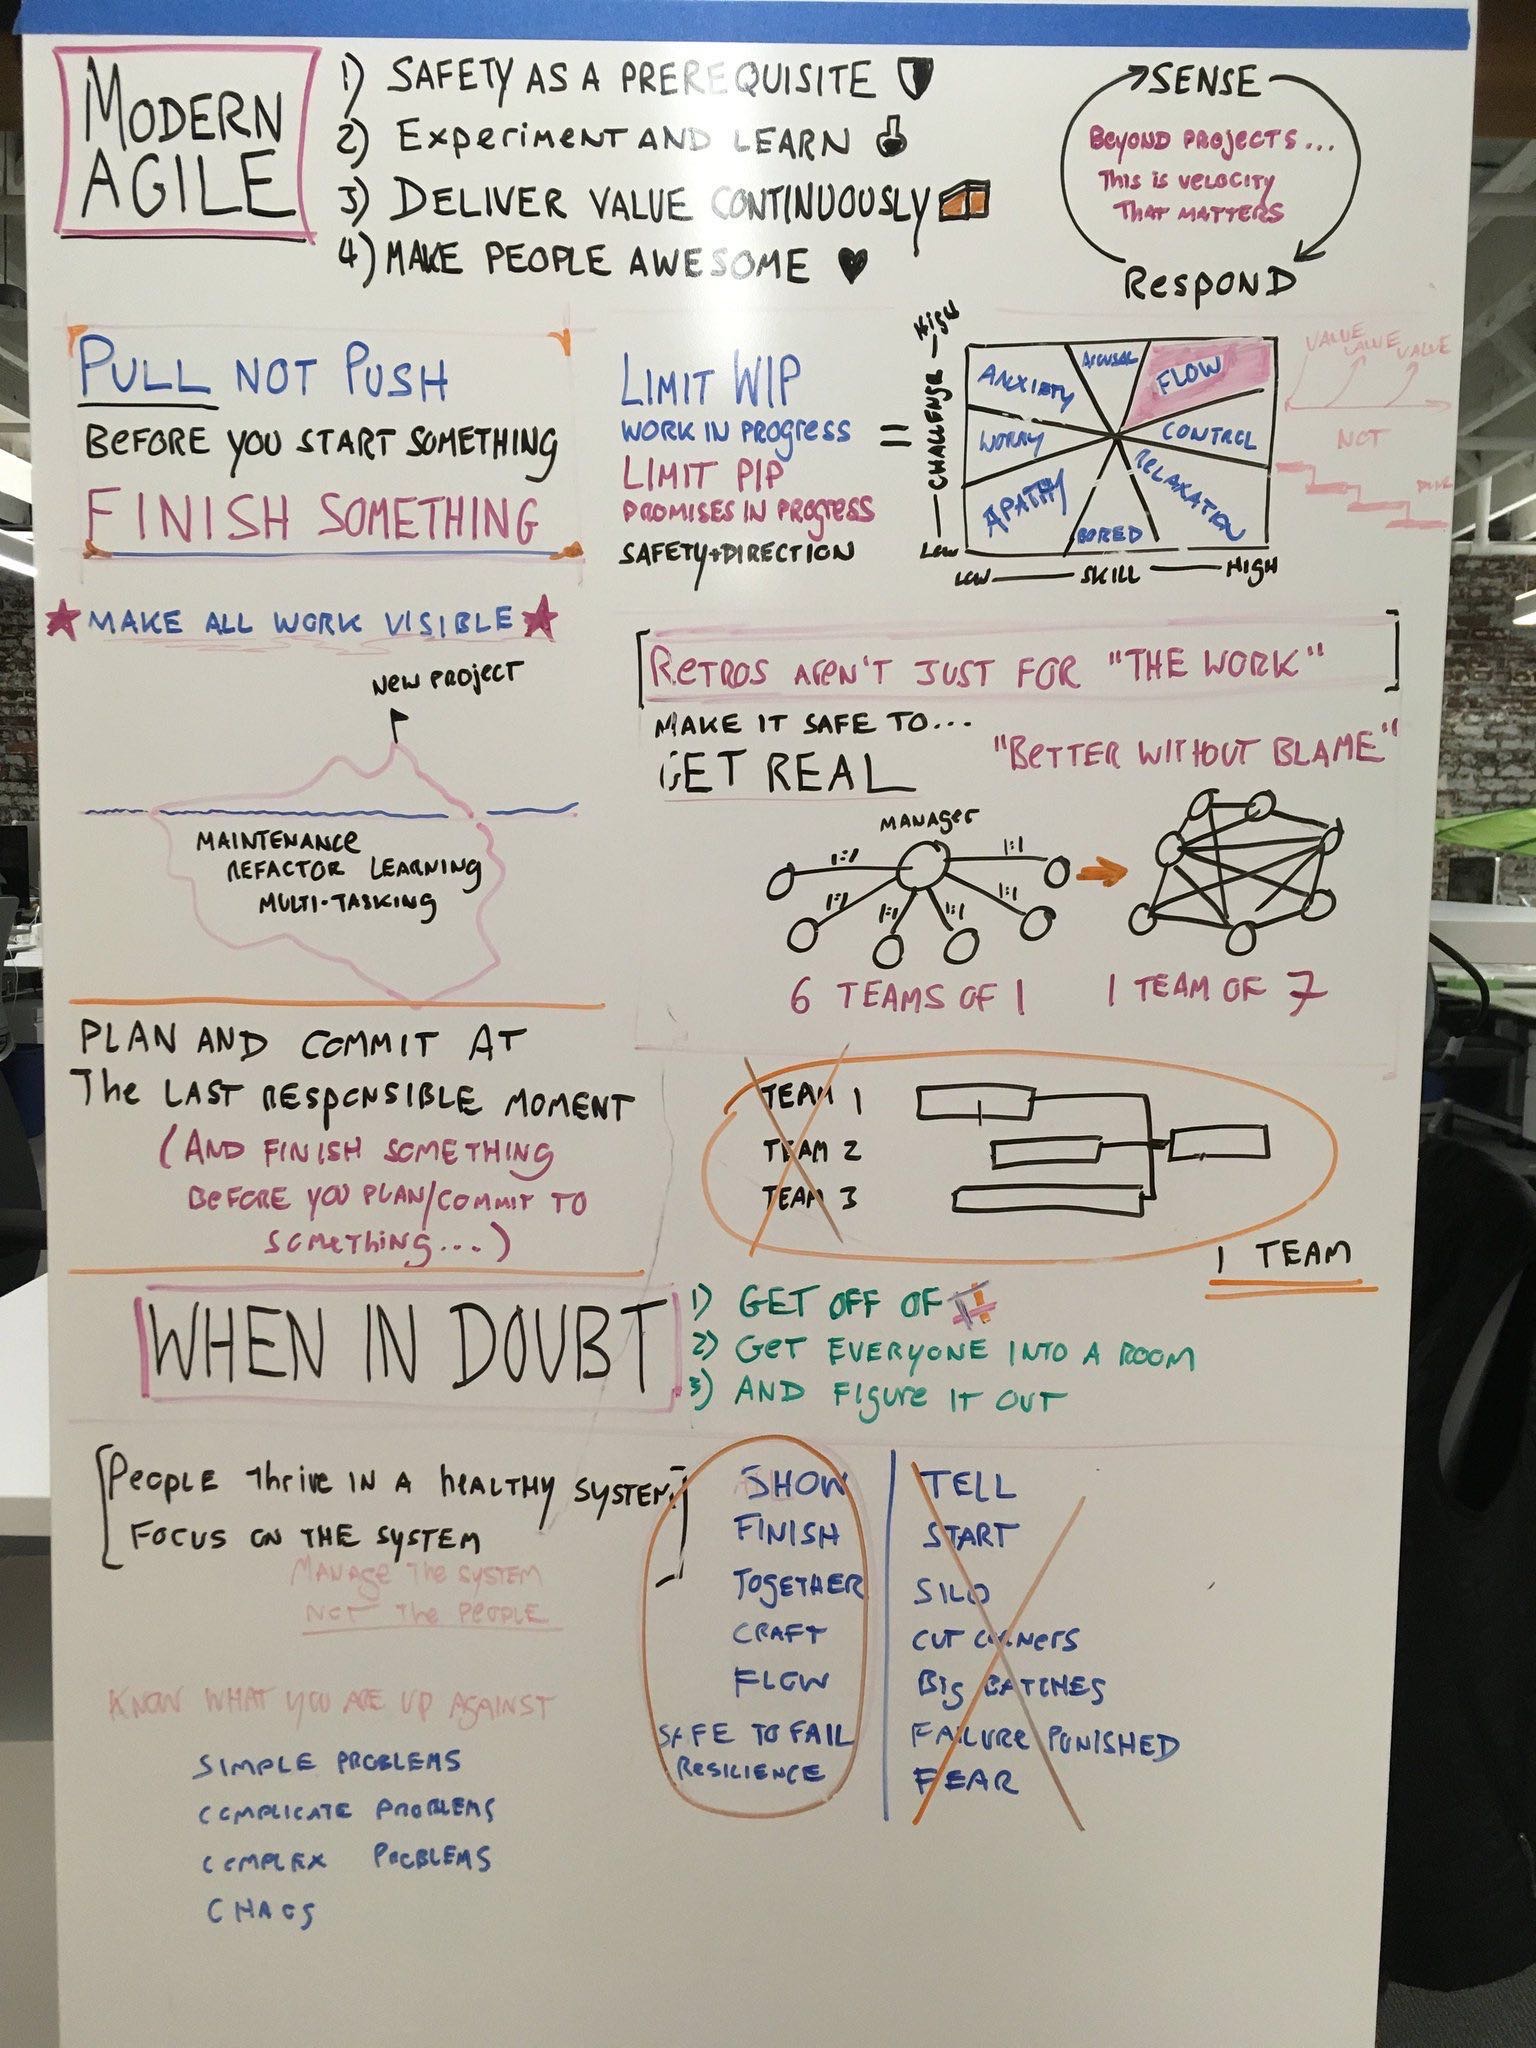 MODERN
AGILE
1) SAFETY AS A PREREQUISITE
2) Experiment AND LEARN
3) DELIVER VALUE CONTINUOUSLY
4) MAKE PEOPLE AWESOME
SENSE
Beyond PROJECTS...
This is velocity
THAT MATTERS
RespOND
PULL NOT PUSH
BeFORE YOU START SOMETHING
FINISH SOMETHING
LIMIT WIP
WORK IN PROgRess
LIMIT PIP
PROMISES IN PROgRess
SAFETY+DIRECTION
=
HIgH
CHALLENGE
Low
ANXIETY
AROUSAL
FLOW
WORRY
CONTROL
APATHY
BORED
RELAXATION
LOW
SKILL
HIgH
VALUE
VALUE
VALUE
NOT
MAKE ALL WORK VISIBLE
NEW PROJECT
MAINTENANCE
REFACTOR LEARNINg
MULTI-TASKINg
ReTROS AreN'T JUST FOR "THE WORK"
MAKE IT SAFE TO...
GET REAL
"BeTTER WITHOUT BLAME"
MANAger
1:1
1:1
1:1
1:1
1:1
1:1
6 TEAMS OF 1
1 TEAM OF 7
PLAN AND COMMIT AT
The LAST RESPONSIBLE MOMENT
(AND FINISH SOMETHING
BeFORE YOU PLAN/COMMIT TO
SOMeThING...)
TEAM 1
TEAM 2
TEAM 3
1 TEAM
WHEN IN DOUBT
1) GET OFF OF
2) GeT EVERYONE INTO A ROOM
3) AND FIgure IT OUT
PeOPLE Thrive IN A heALTHY SYSTEM
FOCUS ON THE SYSTEM
MANAge The SYSTEM
NOT The PEOPLE
SHOW
FINISH
TOgETHER
CRAFT
FLOW
SAFE TO FAIL
ResILIENCE
TELL
START
SILO
CUT CORNerS
BIg BATCHES
FAILURe PUNISHED
FEAR
KNOW WHAT YOU ARE UP AgAINST
SIMPLE PROBLEMS
COMPLICATE PROBLEMS
COMPLEX PROBLEMS
CHAOS